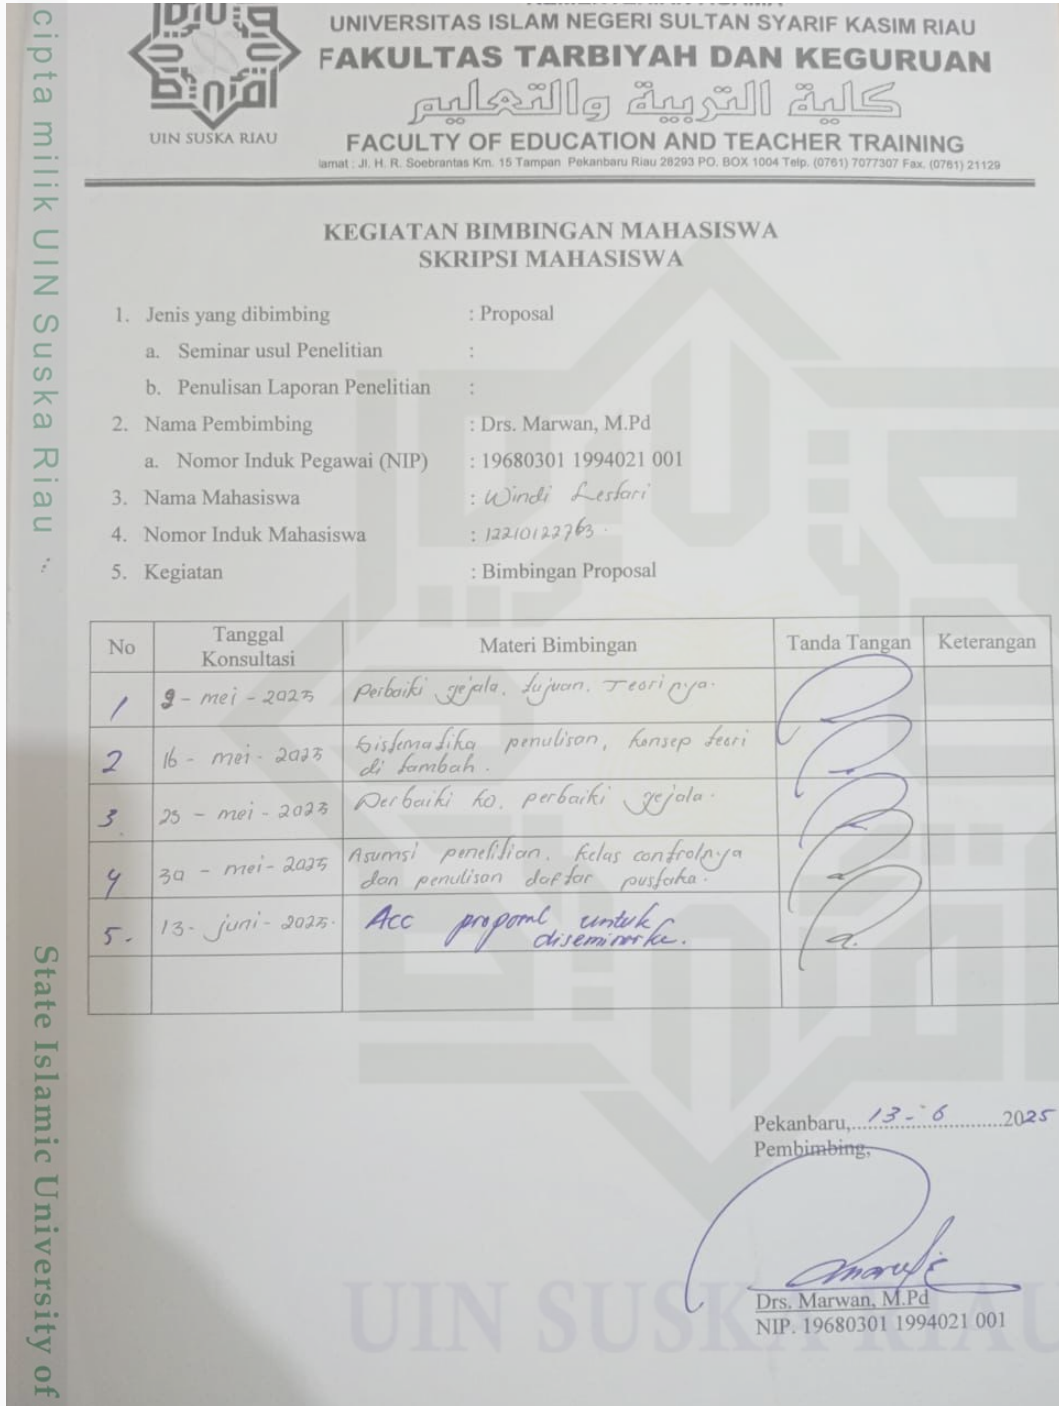 UIN SUSKA RIAU
UNIVERSITAS ISLAM NEGERI SULTAN SYARIF KASIM RIAU
FAKULTAS TARBIYAH DAN KEGURUAN
كلية التربية والتعليم
FACULTY OF EDUCATION AND TEACHER TRAINING
lamat : Jl. H. R. Soebrantas Km. 15 Tampan Pekanbaru Riau 28293 PO. BOX 1004 Telp. (0761) 7077307 Fax. (0761) 21129
KEGIATAN BIMBINGAN MAHASISWA
SKRIPSI MAHASISWA
1. Jenis yang dibimbing : Proposal
a. Seminar usul Penelitian :
b. Penulisan Laporan Penelitian :
2. Nama Pembimbing : Drs. Marwan, M.Pd
a. Nomor Induk Pegawai (NIP) : 19680301 1994021 001
3. Nama Mahasiswa : Windi Lestari
4. Nomor Induk Mahasiswa : 12210122763
5. Kegiatan : Bimbingan Proposal
No Tanggal Konsultasi Materi Bimbingan Tanda Tangan Keterangan
1 9 - mei - 2025 Perbaiki gejala, tujuan, Teorinya.
2 16 - mei - 2025 Sistematika penulisan, konsep teori
di tambah.
3 - mei - 2025 Perbaiki ko, perbaiki gejala.
4 30 - mei - 2025 Asumsi penelitian, kelas controlnya
dan penulisan daftar pustaka.
5. 13 - juni - 2025. Acc proposal untuk
Pekanbaru, 13 - 6 2025
Pembimbing,
Drs. Marwan, M.Pd
NIP. 19680301 1994021 001
cipta milik UIN Suska Riau
State Islamic University of
UIN SUSKA RIAU